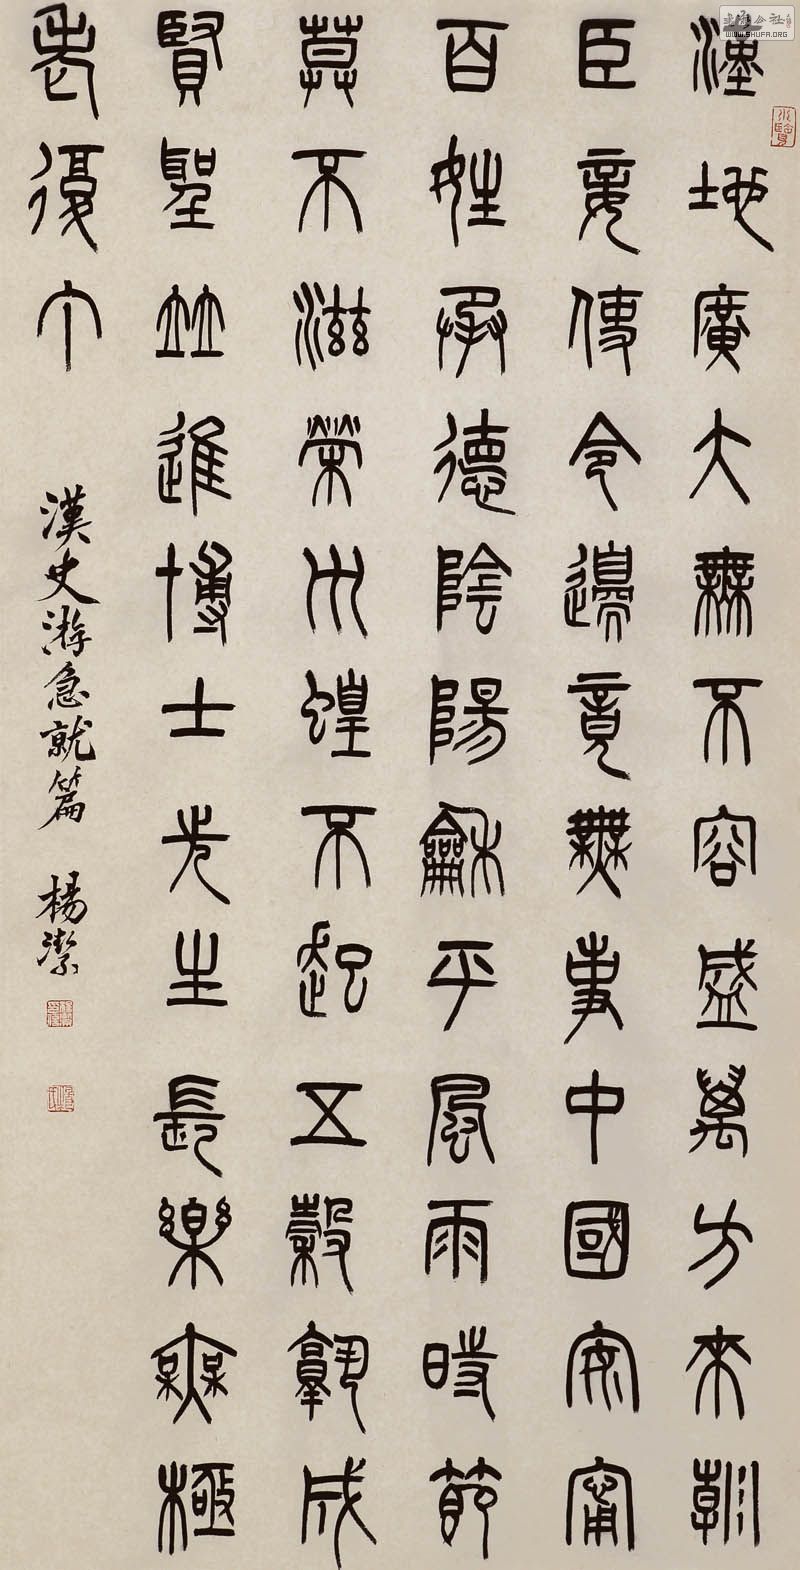 漢地廣大無不容盛萬方來朝
臣妾使令邊竟無事中國安寧
百姓承德陰陽龢平風雨時節
莫不滋榮𡿧蝗不起五穀孰成
賢聖竝進博士先生長樂無極
老復丁
漢史游急就篇 楊潔
WWW.SHUFA.ORG